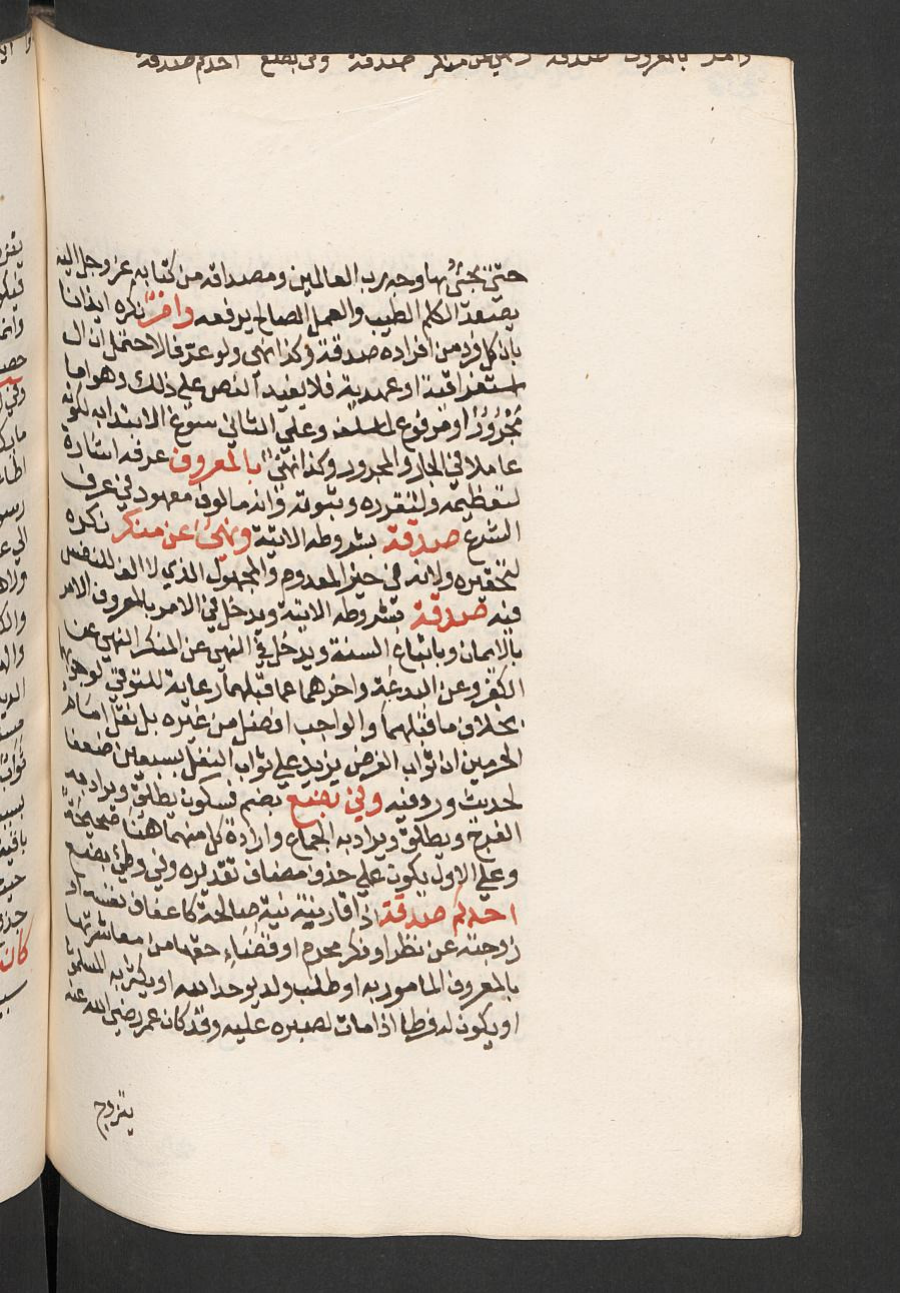 وامر بالمعروف صدقة ونهي عن منكر صدقة وفي بضع احدكم صدقة
حتى بها وجه رب العالمين ومصداقه من كتابه عز وجل اليه
يصعد الكلم الطيب والعمل الصالح يرفعه وامر نكره ايذانا
بان كل فرد من افراده صدقة وكذا نهي ولو عرفا لاحتمل ان ال
استغراقية او عهدية فلا يفيد النص على ذلك وهو اما
مجرور او مرفوع وعلى الثاني سوغ الابتدا به لكونه
عاملا في الجار والمجرور وكذا نهي بالمعروف عرفه اشارة
لتعظيمه ولتقرره وثبوته وانه مالوف معهود في عرف
الشرع صدقة بشروطه الاتية ونهي عن منكر نكره
لتحقيره ولانه في حيز المعدوم والمجهول الذي لا الف للنفس
فيه صدقة بشروطه الاتية ويدخل في الامر بالمعروف الامر
بالايمان وباتباع السنة ويدخل في النهي عن المنكر النهي عن
الكفر وعن البدعة واخرهما عما قبلهما رعاية للترقي لوجوبهما
بخلاف ما قبلهما والواجب افضل من غيره بل نقل امام
الحرمين ان ثواب الفرض يزيد على ثواب النفل بسبعين ضعفا
لحديث ورد فيه وفي بضع بضم فسكون يطلق ويراد به
الفرج ويطلق ويراد به الجماع وارادة كل منهما هنا صحيحة
وعلى الاول يكون على حذف مضاف تقديره وفي وطئ بضع
احدكم صدقة اذا قارنته نية صالحة كاعفاف نفسه او
زوجته عن نظر او فكر محرم او قضاء حقها من معاشرتها
بالمعروف المامور به او طلب ولد يوحد الله او يكثر به المسلمون
او يكون له فرطا اذا مات لصبره عليه وقد كان عمر رضي الله عنه
يتزوج